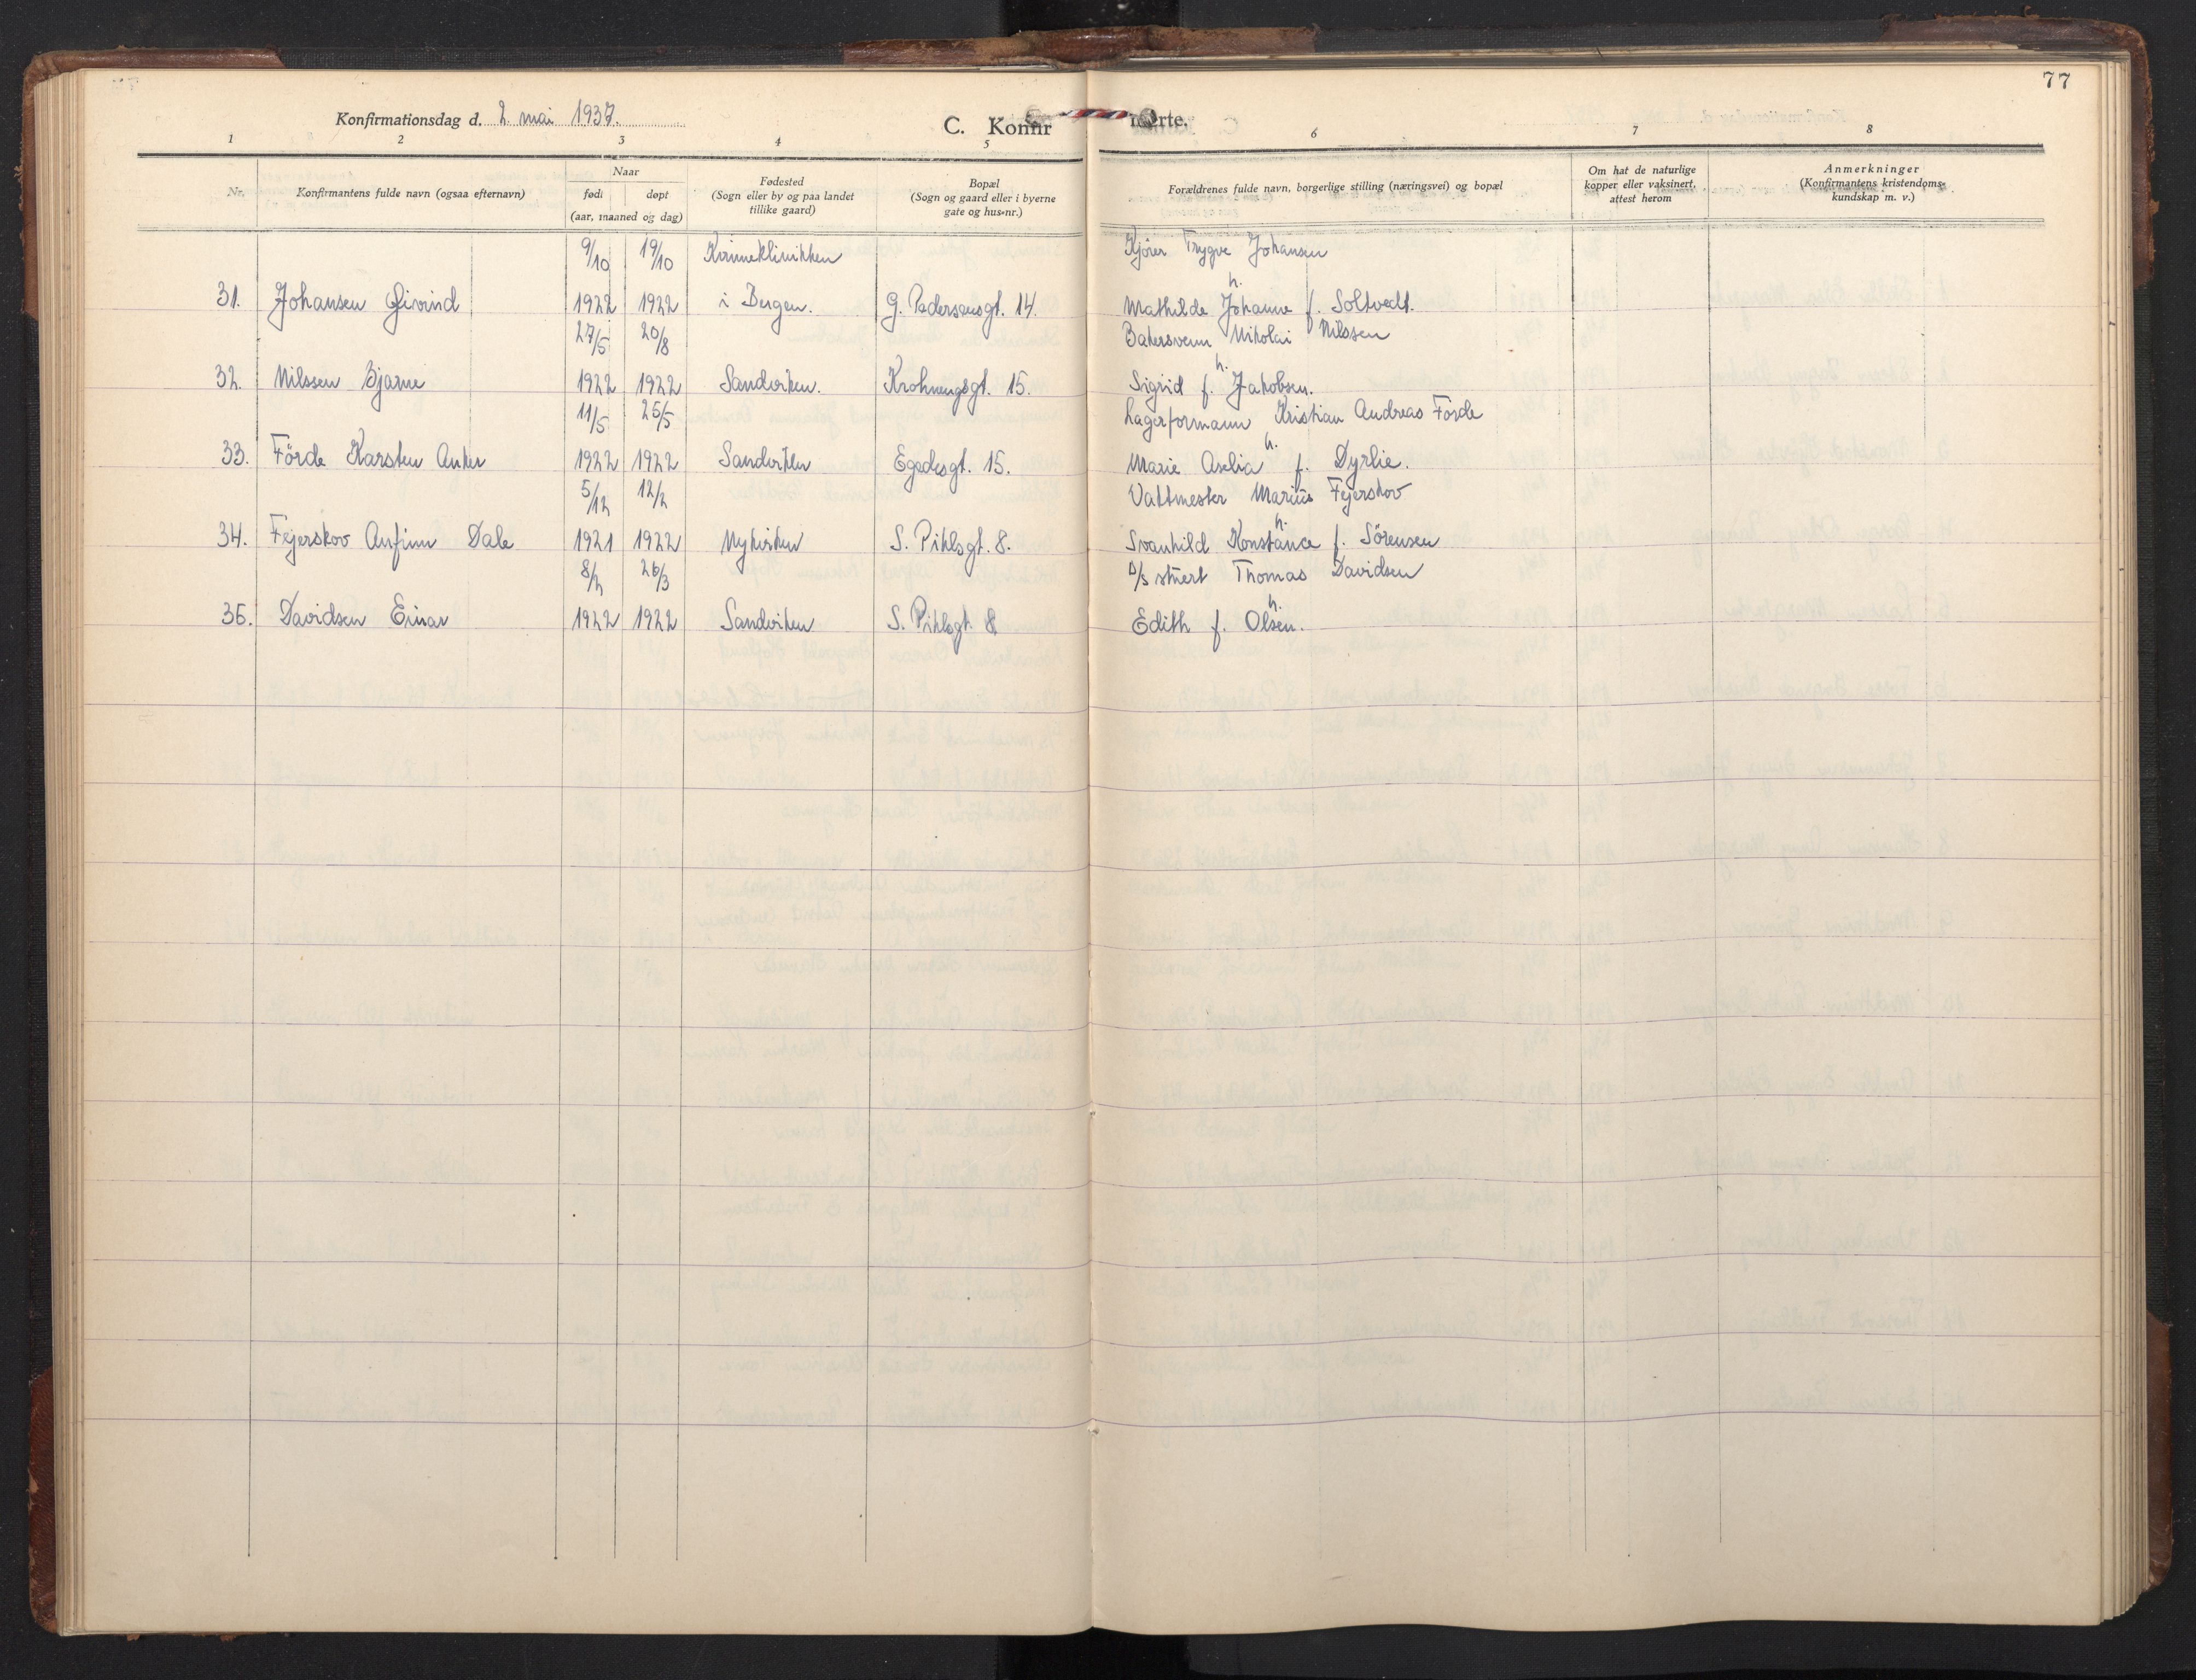 77
Konfirmationsdag d. 2. mai 1937.
C. Konfirmerte.
1 2 3 4 5 6 7 8
Nr.
Konfirmantens fulde navn (ogsaa efternavn)
Naar
født døpt
(aar, maaned og dag)
Fødested
(Sogn eller by og paa landet
tillike gaard)
Bopæl
(Sogn og gaard eller i byerne
gate og hus-nr.)
Forældrenes fulde navn, borgerlige stilling (næringsvei) og bopæl
Om hat de naturlige
kopper eller vaksinert,
attest herom
Anmerkninger
(Konfirmantens kristendoms-
kundskap m. v.)
9/10 19/10 Kvinneklinikken Kjører Trygve Johansen
h.
31. Johansen Øivind 1922 1922 i Bergen. G. Pedersensgt. 14. Mathilde Johanne f. Soltvedt.
27/5 20/8 Bakersvenn Nikolai Nilssen
h.
32. Nilssen Bjarne 1922 1922 Sandviken. Krohnengsgt. 15. Sigrid f. Jakobsen.
11/5 25/5 Lagerformann Kristian Andreas Förde
h.
33. Förde Karsten Anker 1922 1922 Sandviken Egedesgt. 15. Marie Aselia f. Dyrlie.
5/12 12/2 Vaktmester Marius Fejerskov
h.
34. Fejerskov Anfinn Dale 1921 1922 Nykirken S. Pihlsgt. 8. Svanhild Konstance f. Sörensen
8/2 26/3 D/S stuert Thomas Davidsen
h.
35. Davidsen Einar 1922 1922 Sandviken S. Pihlsgt 8 Edith f. Olsen.